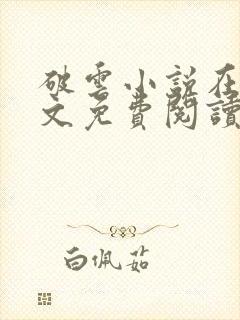 破雲小說在
文免費閱讀
白佩茹